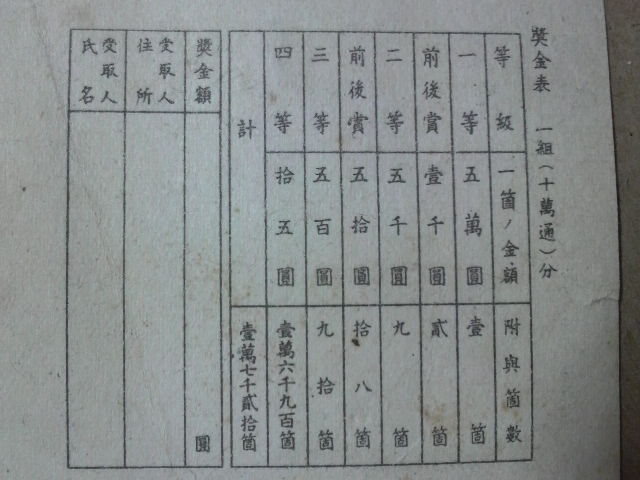 奬金表 一組(十萬通)分
等級 一箇ノ金額 附與箇數
一等 五萬圓 壹箇
前後賞 壹千圓 貳箇
二等 五千圓 九箇
前後賞 五拾圓 拾八箇
三等 五百圓 九拾箇
四等 拾五圓 壹萬六千九百箇
計 壹萬七千貳拾箇
奬金額 圓
受取人住所
受取人氏名